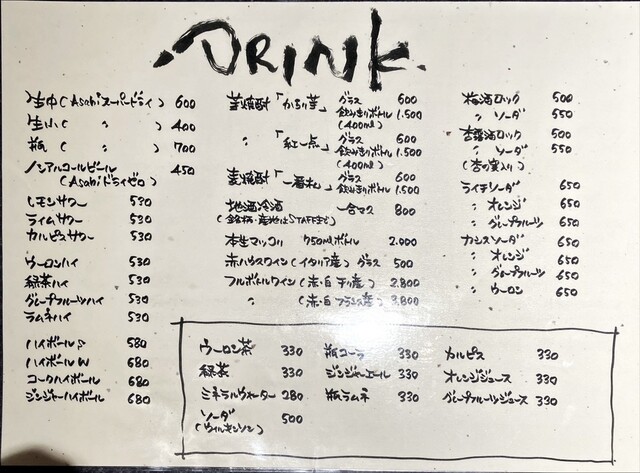 DRINK
生中(Asahiスーパードライ) 600
生小( 〃 ) 400
瓶( 〃 ) 700
ノンアルコールビール 450
(Asahiドライゼロ)
レモンサワー 530
ライムサワー 530
カルピスサワー 530
ウーロンハイ 530
緑茶ハイ 530
グレープフルーツハイ 530
ラムネハイ 530
ハイボールS 580
ハイボールW 680
コークハイボール 680
ジンジャーハイボール 680
芋焼酎「からり芋」 グラス 600
飲みきりボトル 1.500
(400ml)
〃 「紅一点」 グラス 600
飲みきりボトル 1.500
(400ml)
麦焼酎「一番札」 グラス 600
飲みきりボトル 1.500
地酒冷酒 一合マス 800
(銘柄・産地はSTAFFまで)
本生マッコリ 750mlボトル 2.000
赤ハウスワイン(イタリア産) グラス 500
フルボトルワイン(赤・白 チリ産) 2.800
〃 (赤・白 フランス産) 3,800
梅酒ロック 500
〃 ソーダ 550
杏露酒ロック 500
〃 ソーダ 550
(杏の実入り)
ライチソーダ 650
〃 オレンジ 650
〃 グレープフルーツ 650
カシスソーダ 650
〃 オレンジ 650
〃 グレープフルーツ 650
〃 ウーロン 650
ウーロン茶 330
緑茶 330
ミネラルウォーター 280
ソーダ 500
(ウィルキンソン)
瓶コーラ 330
ジンジャーエール 330
瓶ラムネ 330
カルピス 330
オレンジジュース 330
グレープフルーツジュース 330